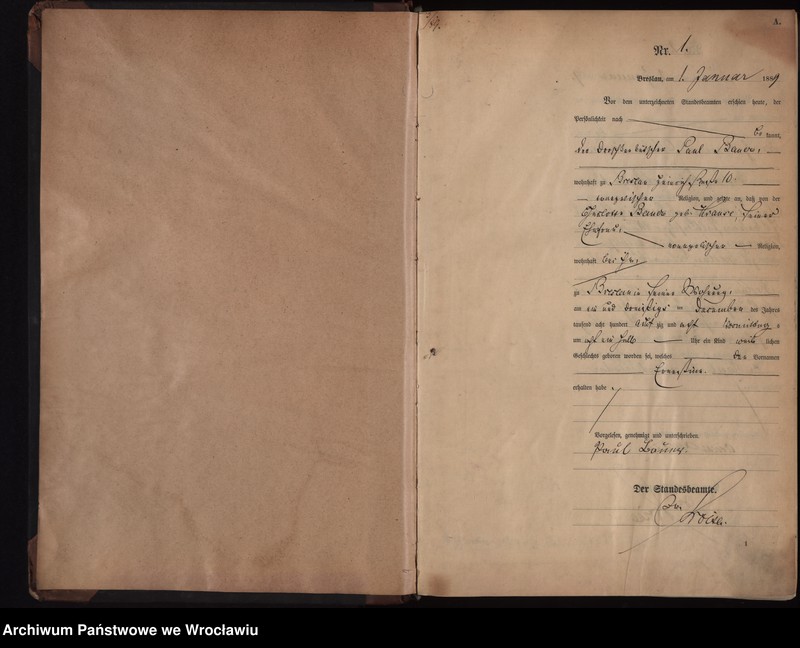 A.
Nr. 1.
Breslau, am 1. Januar 1889
Vor dem unterzeichneten Standesbeamten erschien heute, der
Persönlichkeit nach
be kannt,
der Paul
wohnhaft zu Breslau 10.
evangelischer Religion, und zeigte an, daß von der
geb. seiner
Ehefrau,
evangelischer Religion,
wohnhaft bei ihm,
zu Breslau in seiner Wohnung,
am ein und dreißigsten December des Jahres
tausend acht hundert acht zig und acht Vormittag s
um acht ein halb Uhr ein Kind weib lichen
Geschlechts geboren worden sei, welches den Vornamen
Ernestine
erhalten habe.
Vorgelesen, genehmigt und unterschrieben.
Paul
Der Standesbeamte.
1
Archiwum Państwowe we Wrocławiu